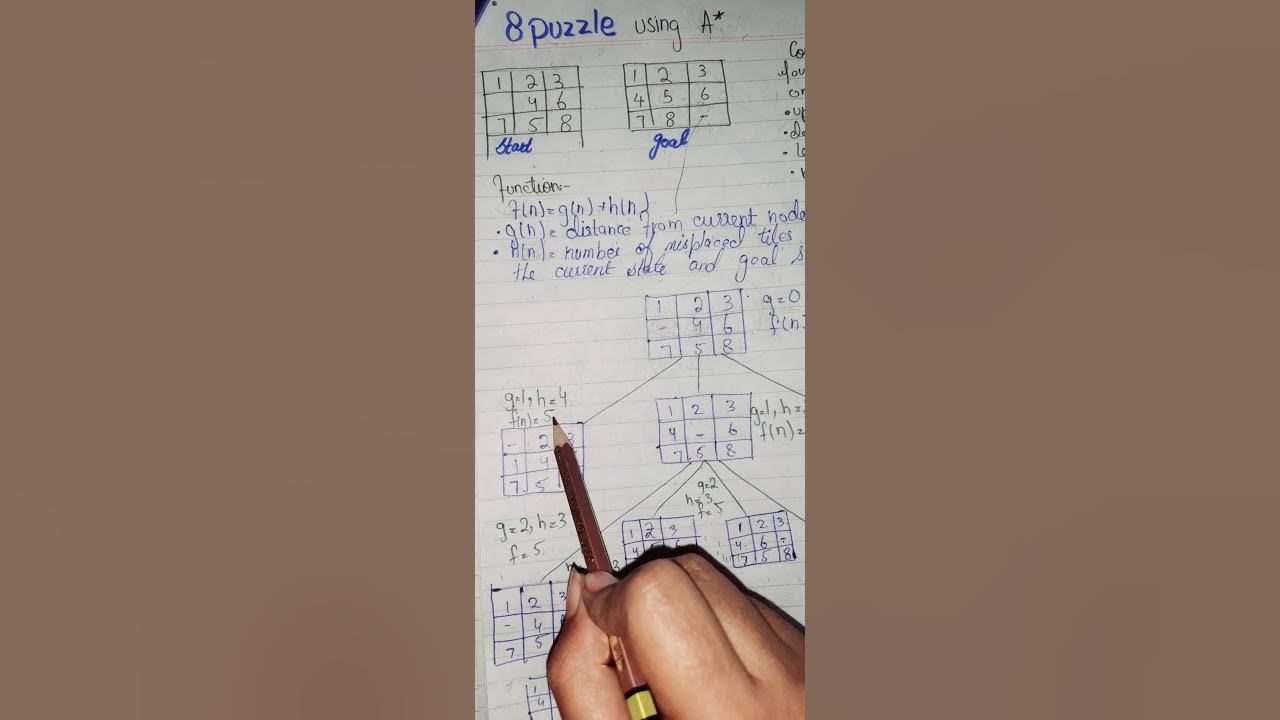 8 puzzle using A*
1 2 3
4 6
7 5 8
Start
1 2 3
4 5 6
7 8 -
goal
Function:-
f(n)=g(n)+h(n)
• g(n)= distance from current node
• h(n)= number of misplaced tiles
the current state and goal
1 2 3
- 4 6
7 5 8
g=0
f(n)
g=1, h=4
f(n)=5
- 2 3
1 4
7 5
1 2 3
4 - 6
7 5 8
g=1, h=
f(n)=
g=2
h=3
f=5
g=2, h=3
f=5
1 2 3
4
1 2 3
4 6 -
7 5 8
1 2 3
- 4
7 5
1
4